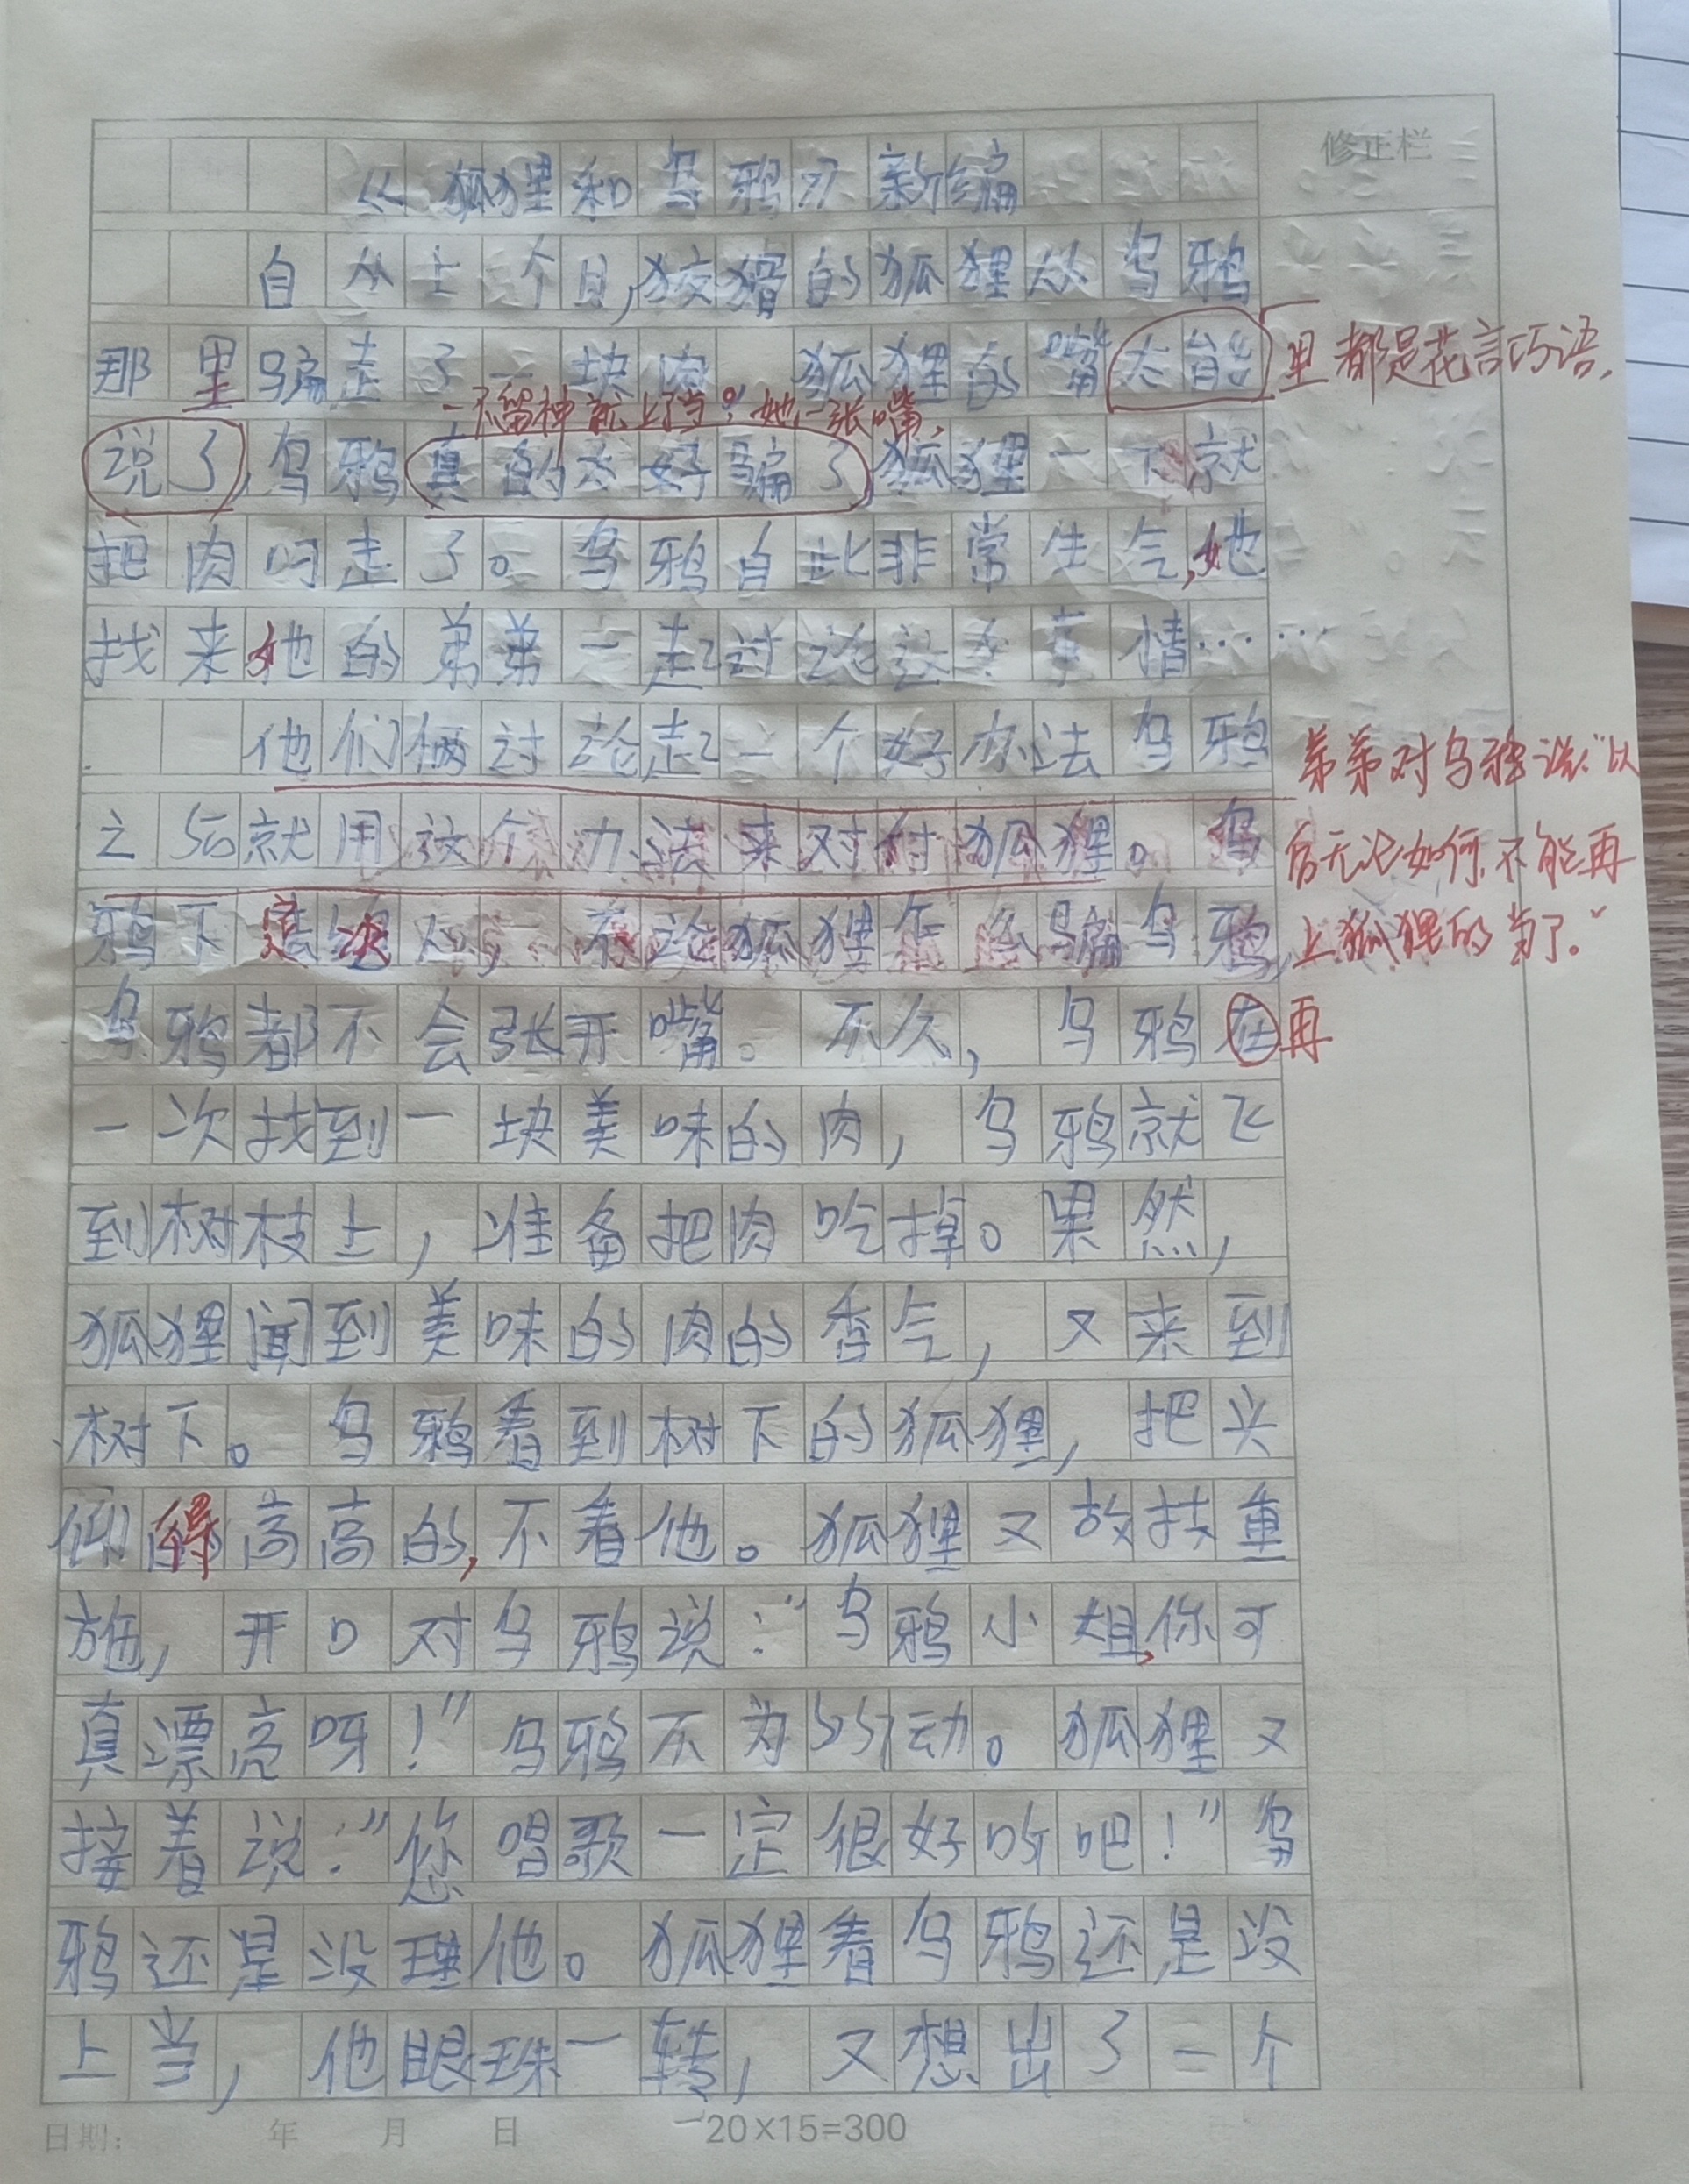 《狐狸和乌鸦》新编
修正栏
自从上个日,狡猾的狐狸从乌鸦
那里骗走了一块肉 狐狸的嘴太能
里都是花言巧语,
一不留神就上了当!她一张嘴,
说了,乌鸦真的太好骗了,狐狸一下就
把肉叼走了。乌鸦自此非常生气,她
找来她的弟弟一起讨论这个事情……
他们俩讨论起一个好办法乌鸦
弟弟对乌鸦说:“以
之后就用这个办法来对付狐狸。乌
后无论如何,不能再
鸦下定决心,不论狐狸怎么骗乌鸦,
上狐狸的当了。”
乌鸦都不会张开嘴。不久,乌鸦在
再
一次找到一块美味的肉,乌鸦就飞
到树枝上,准备把肉吃掉。果然,
狐狸闻到美味的肉的香气,又来到
树下。乌鸦看到树下的狐狸,把头
仰得高高的,不看他。狐狸又故技重
施,开口对乌鸦说:“乌鸦小姐,你可
真漂亮呀!”乌鸦不为所动。狐狸又
接着说:“您唱歌一定很好听吧!”乌
鸦还是没理他。狐狸看乌鸦还是没
上当,他眼珠一转,又想出了一个
日期: 年 月 日
20×15=300